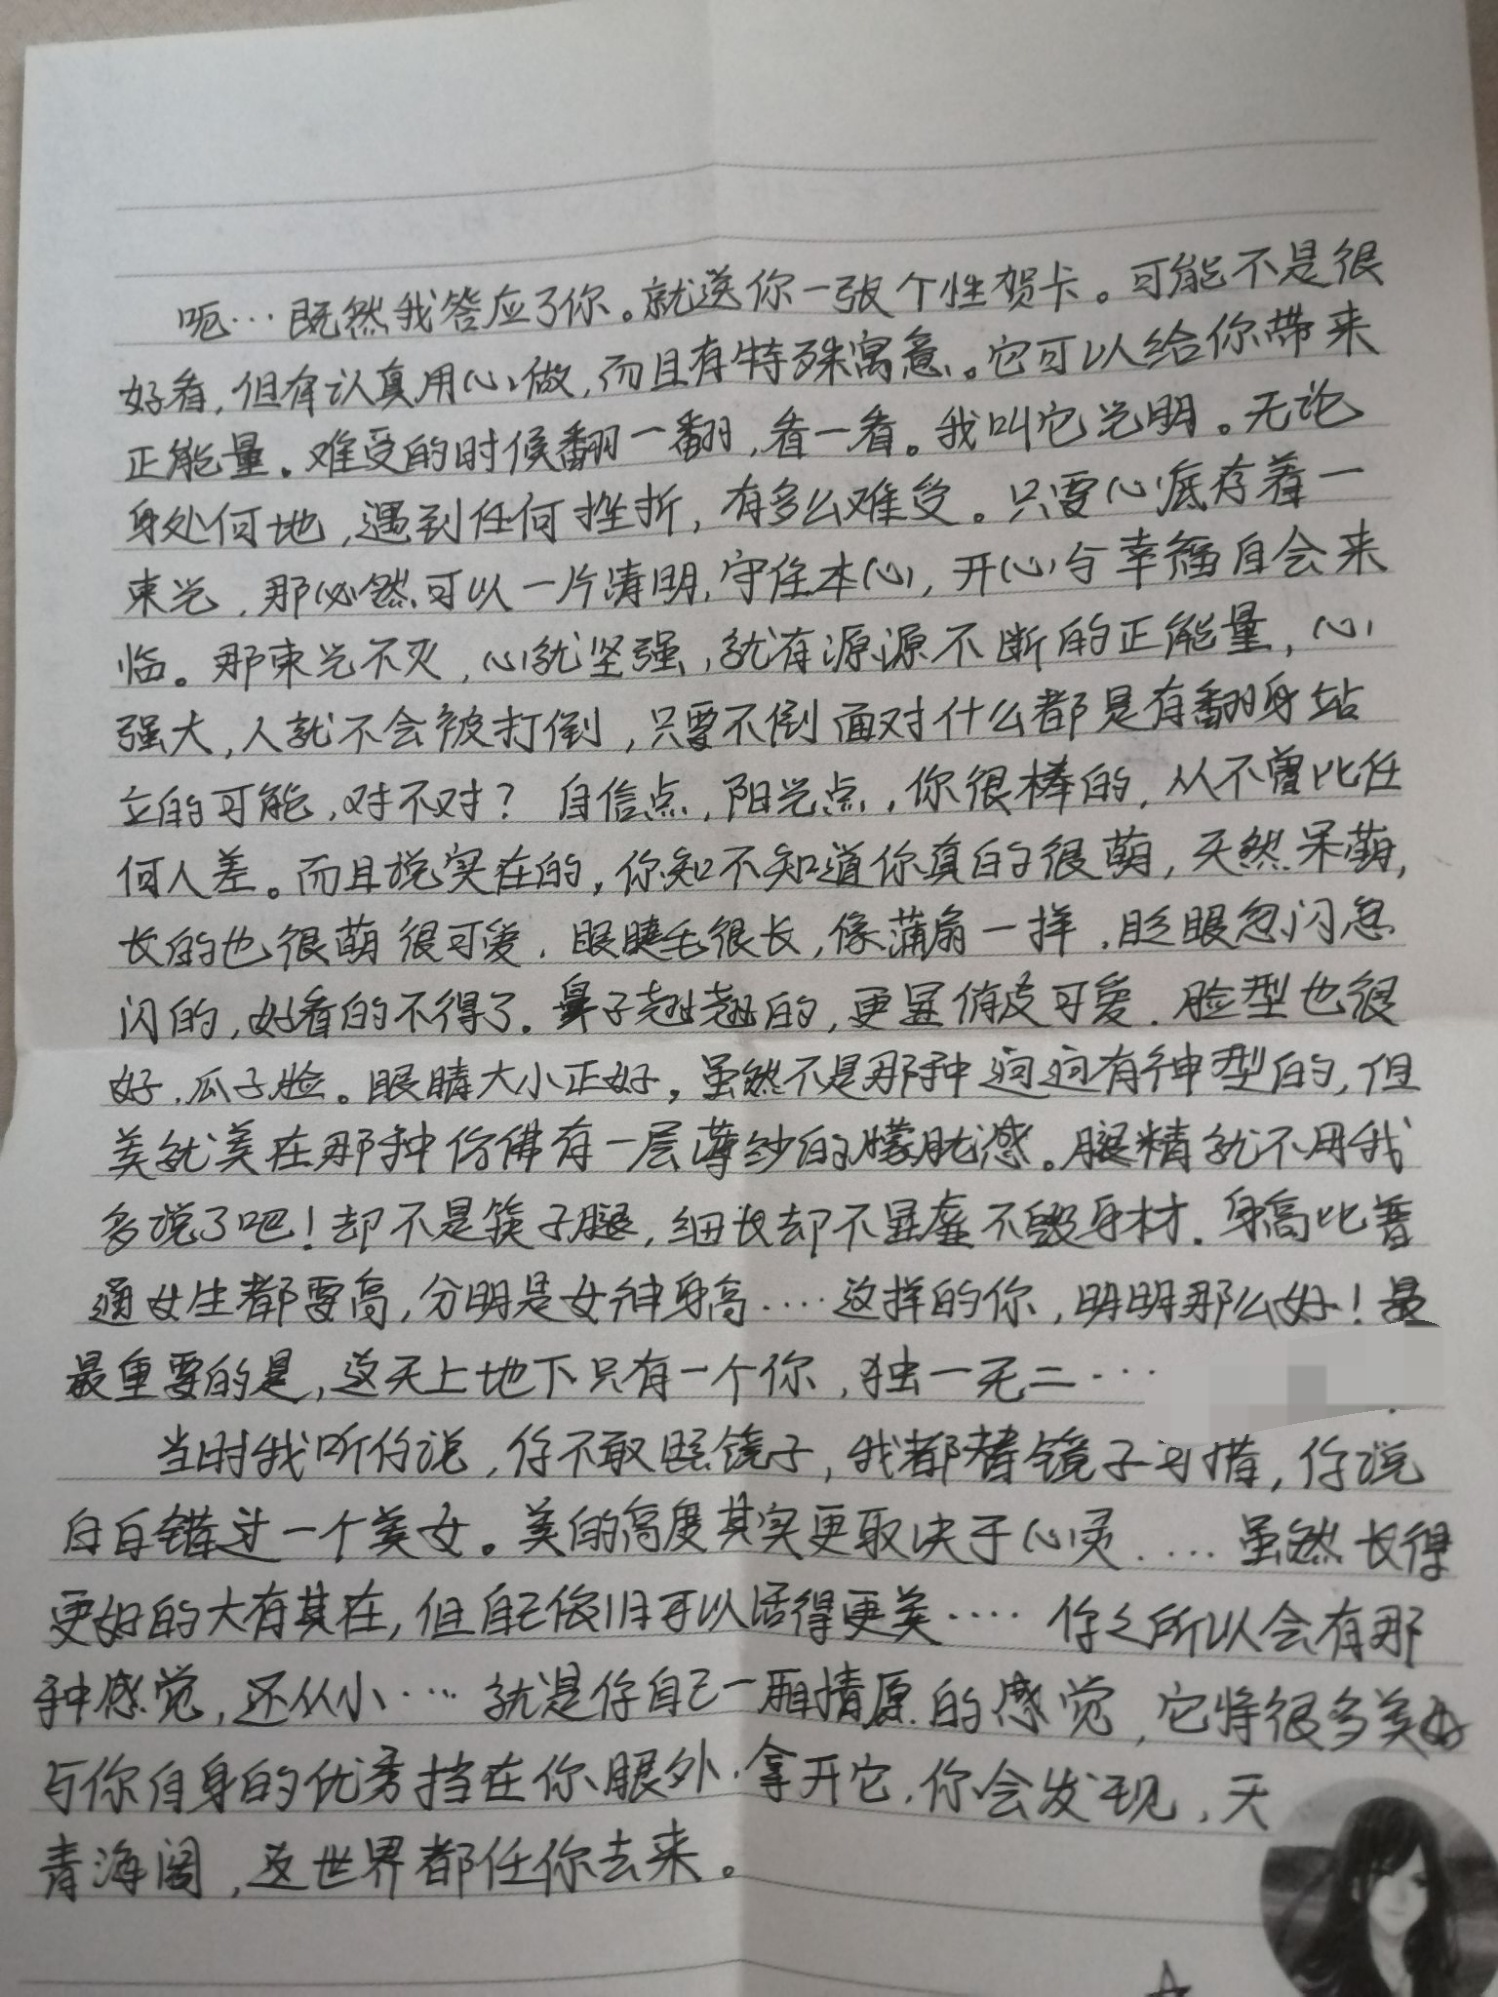 呃…既然我答应了你。就送你一张个性贺卡。可能不是很
好看,但有认真用心做,而且有特殊寓意。它可以给你带来
正能量。难受的时候翻一翻,看一看。我叫它光明。无论
身处何地,遇到任何挫折,有多么难受。只要心底存着一
束光,那必然可以一片清明,守住本心,开心与幸福自会来
临。那束光不灭,心就坚强,就有源源不断的正能量,心
强大,人就不会被打倒,只要不倒面对什么都是有翻身站
立的可能,对不对?自信点,阳光点,你很棒的,从不曾比任
何人差。而且说实在的,你知不知道你真的很萌,天然呆萌,
长的也很萌很可爱.眼睫毛很长,像蒲扇一样.眨眼忽闪忽
闪的,好看的不得了.鼻子翘翘的,更显俏皮可爱.脸型也很
好.瓜子脸。眼睛大小正好。虽然不是那种迥迥有神型的,但
美就美在那种仿佛有一层薄纱的朦胧感。腿精就不用我
多说了吧!却不是筷子腿,细长却不显瘦不毁身材.身高比普
通女生都要高,分明是女神身高....这样的你,明明那么好!最
最重要的是,这天上地下只有一个你,独一无二…
当时我听你说,你不敢照镜子,我都替镜子可惜,你说
白白错过一个美女。美的高度其实更取决于心灵....虽然长得
更好的大有其在,但自己依旧可以活得更美....你之所以会有那
种感觉,还从小....就是你自己一厢情愿的感觉,它将很多美好
与你自身的优秀挡在你眼外.拿开它,你会发现,天
青海阔,这世界都任你去来。